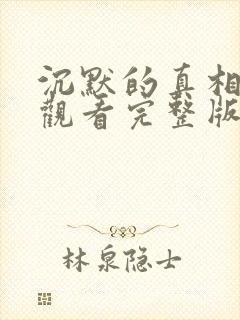 沉默的真相
觀看完整版
林泉隐士